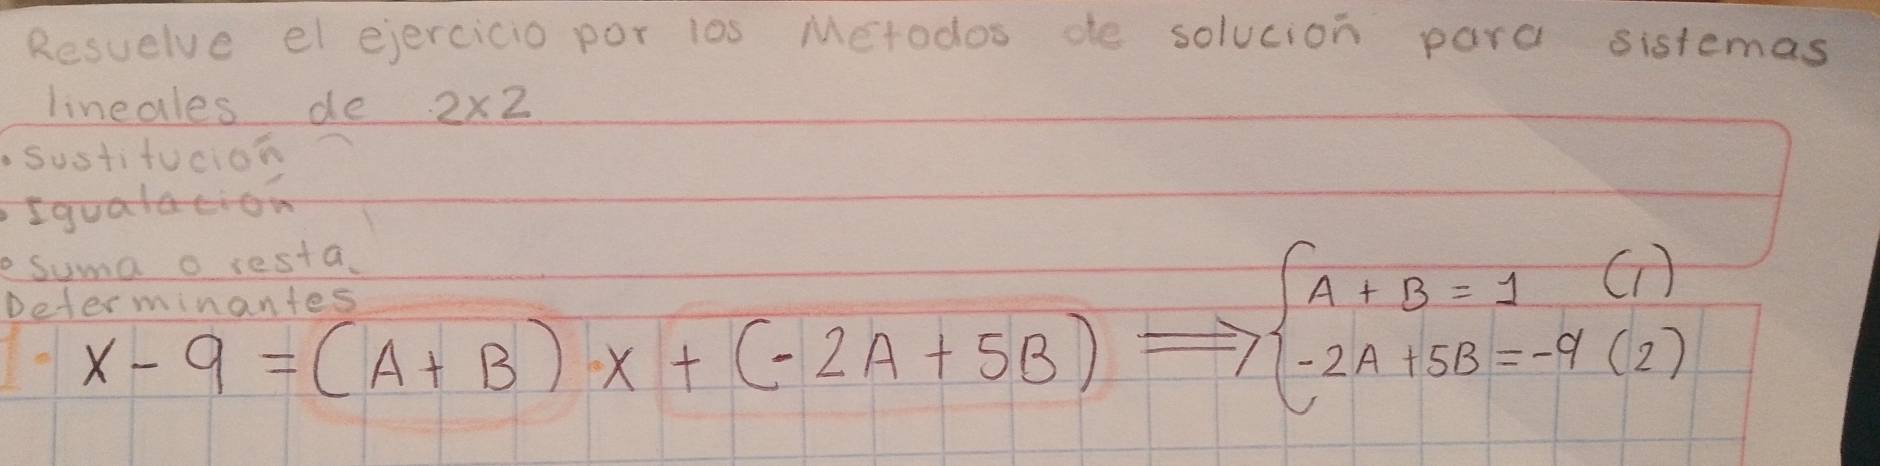 Resuelve el ejercicio por los Metodos de solución para sistemas
lineales de 2x2
• Sustitución
• Igualación
• Suma o resta.
Determinantes
1. x - 9 = (A + B) · x + (-2A + 5B) ⟹ { A + B = 1 (1)
-2A + 5B = -9 (2)